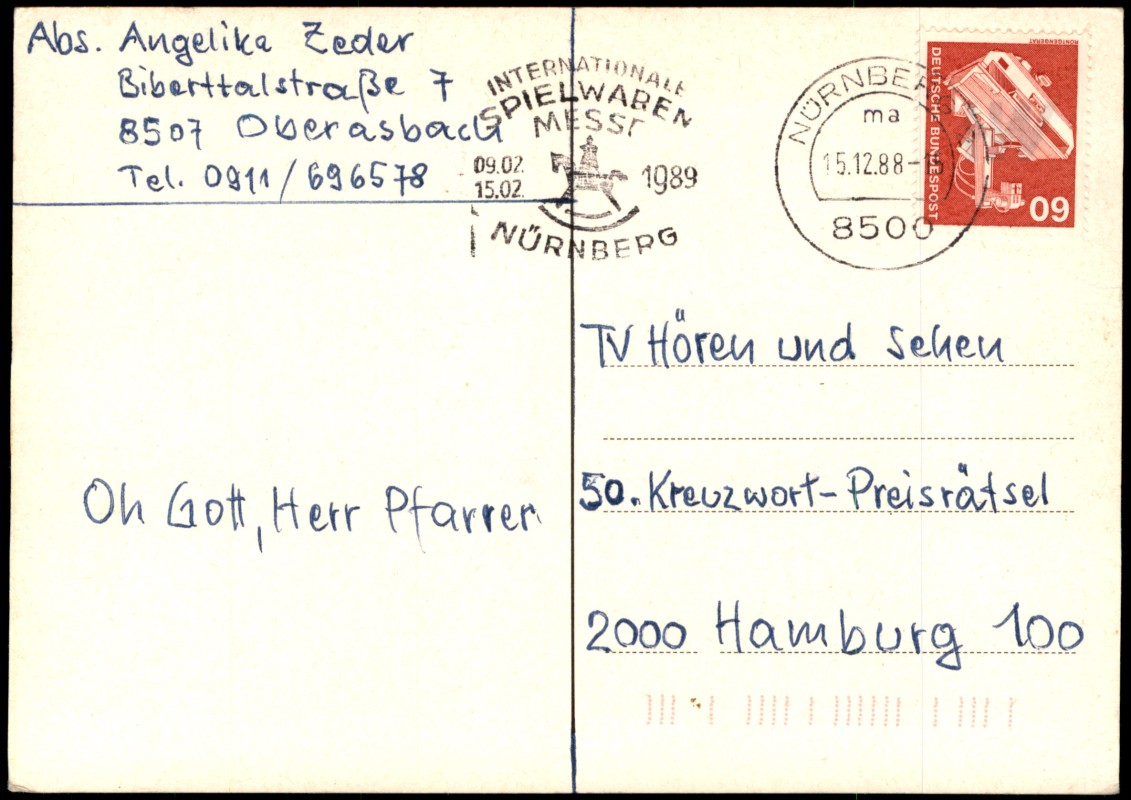 Abs. Angelika Zeder
Biberttalstraße 7
8507 Oberasbach
Tel. 0911/696578
INTERNATIONALE
SPIELWAREN
MESSE
09.02.
15.02.
1989
NÜRNBERG
NÜRNBERG
ma
15.12.88-
8500
RÖNTGENGERÄT
DEUTSCHE BUNDESPOST
60
TV Hören und Sehen
50. Kreuzwort-Preisrätsel
2000 Hamburg 100
Oh Gott, Herr Pfarrer